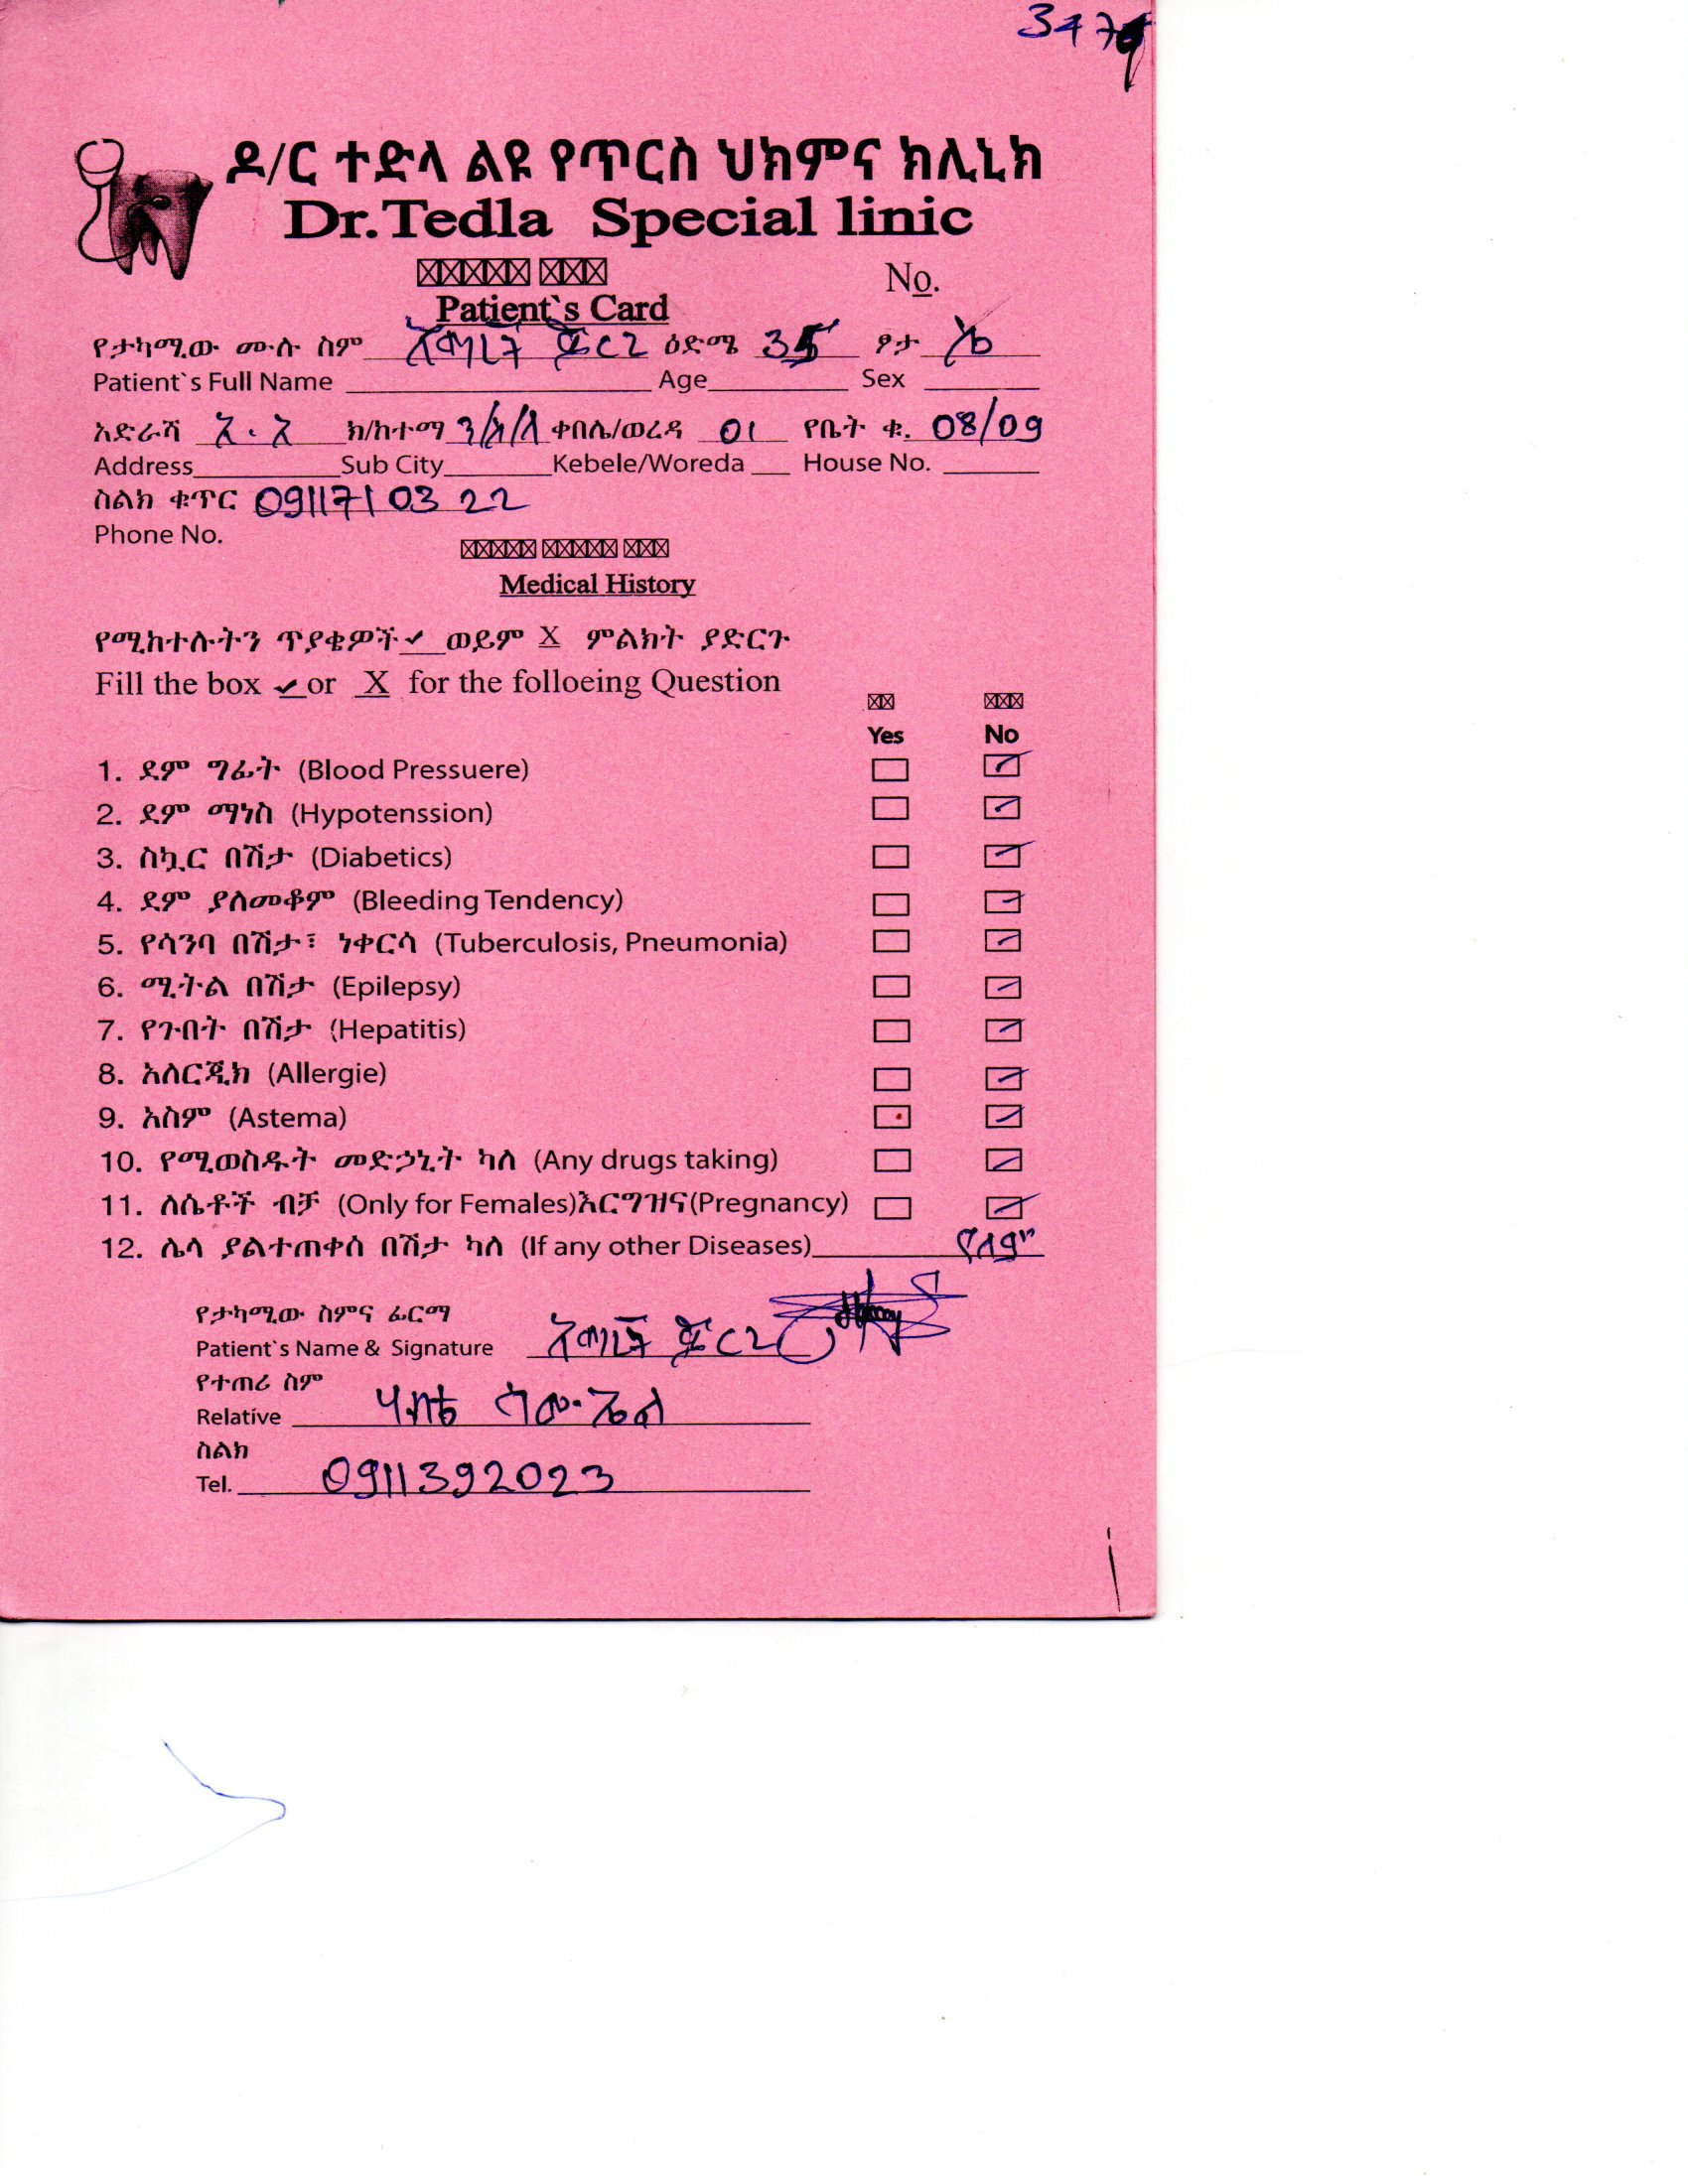 ዶ/ር ተድላ ልዩ የጥርስ ህክምና ክሊኒክ
Dr.Tedla Special linic
No.
Patient`s Card
የታካሚው ሙሉ ስም ዕድሜ 35 ፆታ
Patient`s Full Name Age Sex
አድራሻ አ.አ ክ/ከተማ ን/ስ/ላ ቀበሌ/ወረዳ 01 የቤት ቁ. 08/09
Address Sub City Kebele/Woreda House No.
ስልክ ቁጥር 0911710322
Phone No.
Medical History
የሚከተሉትን ጥያቄዎች ✓ ወይም X ምልክት ያድርጉ
Fill the box ✓ or X for the folloeing Question
Yes No
1. ደም ግፊት (Blood Pressuere)
2. ደም ማነስ (Hypotenssion)
3. ስኳር በሽታ (Diabetics)
4. ደም ያለመቆም (Bleeding Tendency)
5. የሳንባ በሽታ፣ ነቀርሳ (Tuberculosis, Pneumonia)
6. ሚትል በሽታ (Epilepsy)
7. የጉበት በሽታ (Hepatitis)
8. አለርጂክ (Allergie)
9. አስም (Astema)
10. የሚወስዱት መድኃኒት ካለ (Any drugs taking)
11. ለሴቶች ብቻ (Only for Females)እርግዝና(Pregnancy)
12. ሌላ ያልተጠቀሰ በሽታ ካለ (If any other Diseases) የለም
የታካሚው ስምና ፊርማ
Patient`s Name & Signature
የተጠሪ ስም
Relative ሳሙኤል
ስልክ
Tel. 0911392023